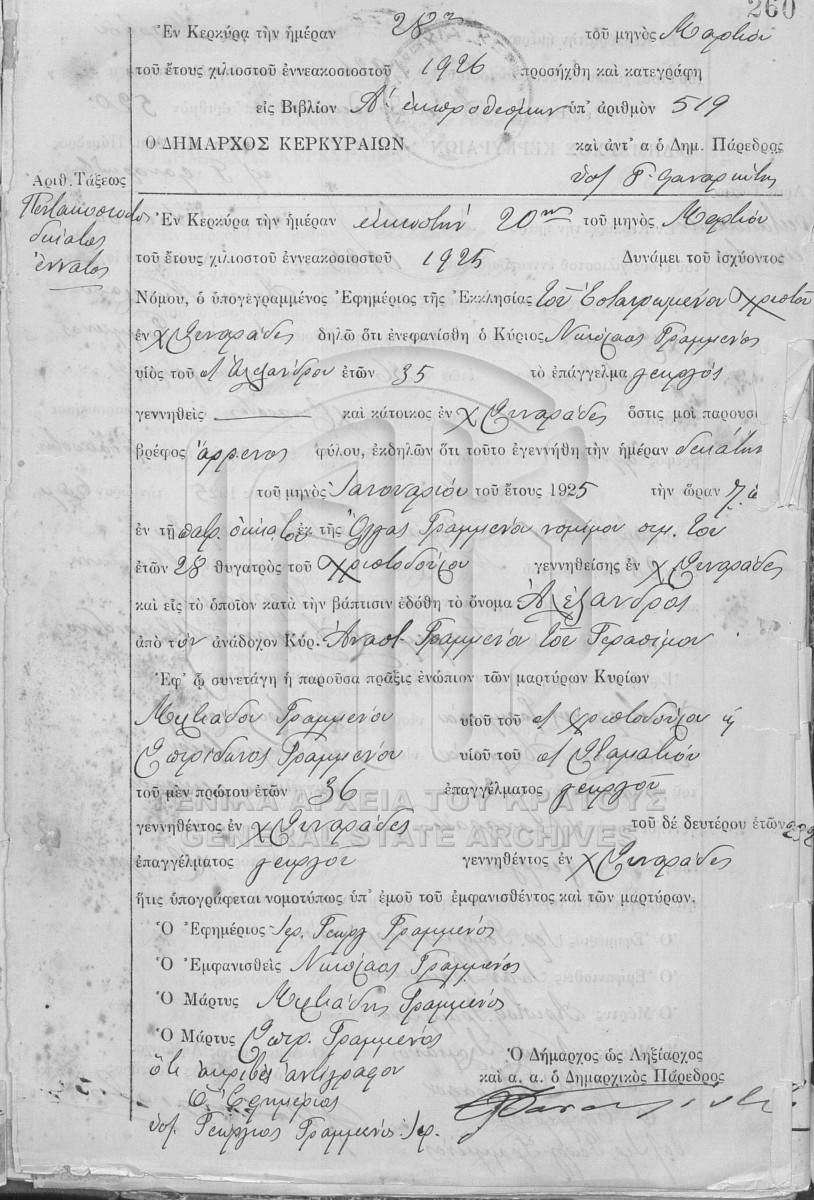 260
Ἐν Κερκύρᾳ τὴν ἡμέραν 28ην τοῦ μηνὸς Μαρτίου
τοῦ ἔτους χιλιοστοῦ ἐννεακοσιοστοῦ 1926 προσήχθη καὶ κατεγράφη
εἰς Βιβλίον Α' ἐκπροθέσμων ὑπ' ἀριθμὸν 519
Ο ΔΗΜΑΡΧΟΣ ΚΕΡΚΥΡΑΙΩΝ καὶ ἀντ' α ὁ Δημ. Πάρεδρος
Ἀριθ. Τάξεως
Πεντακοσιοστὸς
δέκατος
ἔννατος
Ἐν Κερκύρᾳ τὴν ἡμέραν εἰκοστήν 20ην τοῦ μηνὸς Μαρτίου
τοῦ ἔτους χιλιοστοῦ ἐννεακοσιοστοῦ 1925 Δυνάμει τοῦ ἰσχύοντος
Νόμου, ὁ ὑπογεγραμμένος Ἐφημέριος τῆς Ἐκκλησίας τοῦ Ἐσταυρωμένου Χριστοῦ
ἐν χ Σιναράδες δηλῶ ὅτι ἐνεφανίσθη ὁ Κύριος Νικόλαος Γραμμενός
υἱὸς τοῦ Ἀλεξάνδρου ἐτῶν 35 τὸ ἐπάγγελμα γεωργός
γεννηθεὶς καὶ κάτοικος ἐν χ Σιναράδες ὅστις μοὶ παρουσι
βρέφος ἄρρενος φύλου, ἐκδηλῶν ὅτι τοῦτο ἐγεννήθη τὴν ἡμέραν δεκάτην
τοῦ μηνὸς Ἰανουαρίου τοῦ ἔτους 1925 τὴν ὥραν 7
ἐν τῇ πατρ. οἰκίᾳ του ἐκ τῆς Ὄλγας Γραμμενοῦ νομίμου συζ. του
ἐτῶν 28 θυγατρὸς τοῦ Χριστοδούλου γεννηθείσης ἐν χ Σιναράδες
καὶ εἰς τὸ ὁποῖον κατὰ τὴν βάπτισιν ἐδόθη τὸ ὄνομα Ἀλέξανδρος
ἀπὸ τὸν ἀνάδοχον Κύρ. Ἀναστ. Γραμμενόν του Γερασίμου
Ἐφ' ᾧ συνετάγη ἡ παροῦσα πρᾶξις ἐνώπιον τῶν μαρτύρων Κυρίων
Μιλτιάδου Γραμμενοῦ υἱοῦ τοῦ Χριστοδούλου ἢ
Σπυρίδωνος Γραμμενοῦ υἱοῦ τοῦ Σταματίου
τοῦ μὲν πρώτου ἐτῶν 36 ἐπαγγέλματος γεωργοῦ
ΓΕΝΙΚΑ ΑΡΧΕΙΑ ΤΟΥ ΚΡΑΤΟΥΣ
γεννηθέντος ἐν χ Σιναράδες τοῦ δὲ δευτέρου ἐτῶν 32
GENERAL STATE ARCHIVES
ἐπαγγέλματος γεωργοῦ γεννηθέντος ἐν χ Σιναράδες
ἥτις ὑπογράφεται νομοτύπως ὑπ' ἐμοῦ τοῦ ἐμφανισθέντος καὶ τῶν μαρτύρων.
Ὁ Ἐφημέριος Ιερ. Γεώργ Γραμμενός
Ὁ Ἐμφανισθεὶς Νικόλαος Γραμμενός
Ὁ Μάρτυς Μιλτιάδης Γραμμενός
Ὁ Μάρτυς Σπυρ. Γραμμενός
ὅτι ἀκριβὲς ἀντίγραφον
Ὁ Ἐφημέριος
ὑπ. Γεώργιος Γραμμενός Ιερ.
Ὁ Δήμαρχος ὡς Ληξίαρχος
καὶ α. α. ὁ Δημαρχικὸς Πάρεδρος